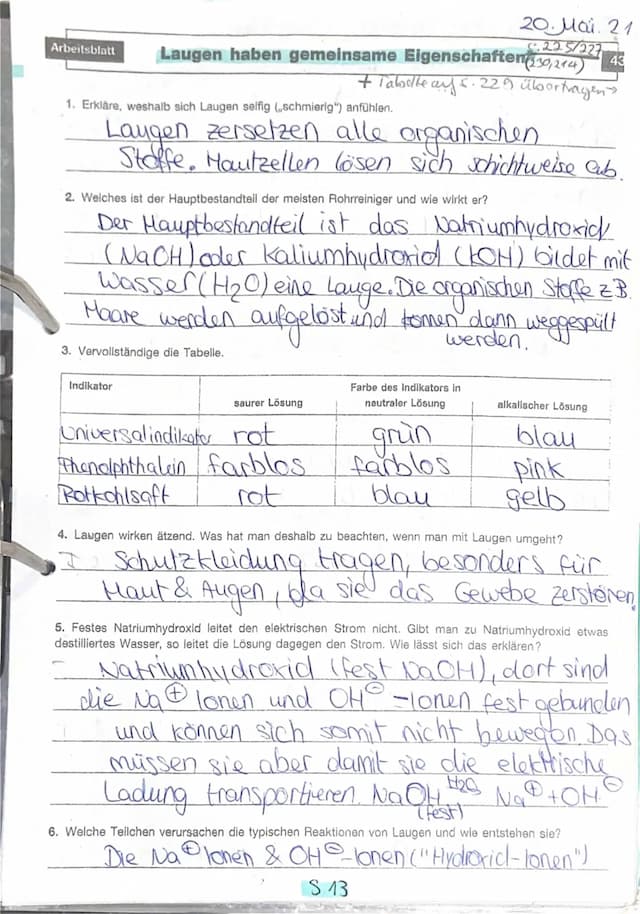 20. Mai. 21
Arbeitsblatt
Laugen haben gemeinsame Eigenschaften
S. 225/227
(230,214)
43
+ Tabelle auf S. 229 übertragen→
1. Erkläre, weshalb sich Laugen seifig („schmierig“) anfühlen.
Laugen zersetzen alle organischen
Stoffe. Hautzellen lösen sich schichtweise ab.
2. Welches ist der Hauptbestandteil der meisten Rohrreiniger und wie wirkt er?
Der Hauptbestandteil ist das Natriumhydroxid
(NaOH) oder Kaliumhydroxid (KOH) bildet mit
Wasser (H2O) eine Lauge. Die organischen Stoffe z.B.
Haare werden aufgelöst und können dann weggespült
werden.
3. Vervollständige die Tabelle.
Indikator
Farbe des Indikators in
saurer Lösung neutraler Lösung alkalischer Lösung
Universalindikator rot grün blau
Phenolphthalein farblos farblos pink
Rotkohlsaft rot blau gelb
4. Laugen wirken ätzend. Was hat man deshalb zu beachten, wenn man mit Laugen umgeht?
Schutzkleidung tragen, besonders für
Haut & Augen, da sie das Gewebe zerstören.
5. Festes Natriumhydroxid leitet den elektrischen Strom nicht. Gibt man zu Natriumhydroxid etwas
destilliertes Wasser, so leitet die Lösung dagegen den Strom. Wie lässt sich das erklären?
- Natriumhydroxid (fest NaOH), dort sind
die Na⊕ Ionen und OH⊖-Ionen fest gebunden
und können sich somit nicht bewegen. Das
müssen sie aber damit sie die elektrische
Ladung transportieren. NaOH H2O Na⊕ + OH⊖
(fest)
6. Welche Teilchen verursachen die typischen Reaktionen von Laugen und wie entstehen sie?
Die Na⊕ Ionen & OH⊖-Ionen ("Hydroxid-Ionen")
S. 13